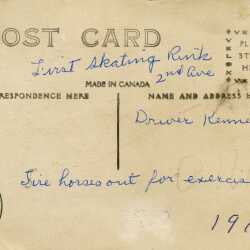 POST CARD
First Skating Rink
2nd Ave
MADE IN CANADA
CORRESPONDENCE HERE
NAME AND ADDRESS H
Driver Kenne
Fire horses out for exercis
191